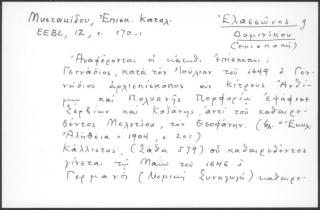 Μυστακίδου, Ἐπισκ. Καταλ. Ἐλασσῶνος
ΕΕΒΣ, 12, σ. 170-1 Δομενίκου
(ἐπισκοπή)
Ἀναφέρονται οἱ κάτωθι ἐπίσκοποι:
Γεννάδιος, κατὰ τὸν Ἰούλιον τοῦ 1649 ὁ Γεν-
νάδιος ἀρχιεπίσκοπος σὺν Κίτρους Ἀνθί-
μῳ καὶ Πολυανῆς Πορφυρίῳ ἐψήφισε
Σερβίων καὶ Κοζάνης, ἀντὶ τοῦ καθαιρε-
θέντος Μελετίου, τὸν Θεοφάνην. (βλ. "Ἐκκλ.
Ἀλήθεια" 1904, σ. 205)
Κάλλιστος, (Σάθα 579) οὗ καθαιρεθέντος
γίνεται τῷ Μαΐῳ τοῦ 1646 ὁ
Γερμανός (Νομικὴ Συναγωγή) καθαιρε-